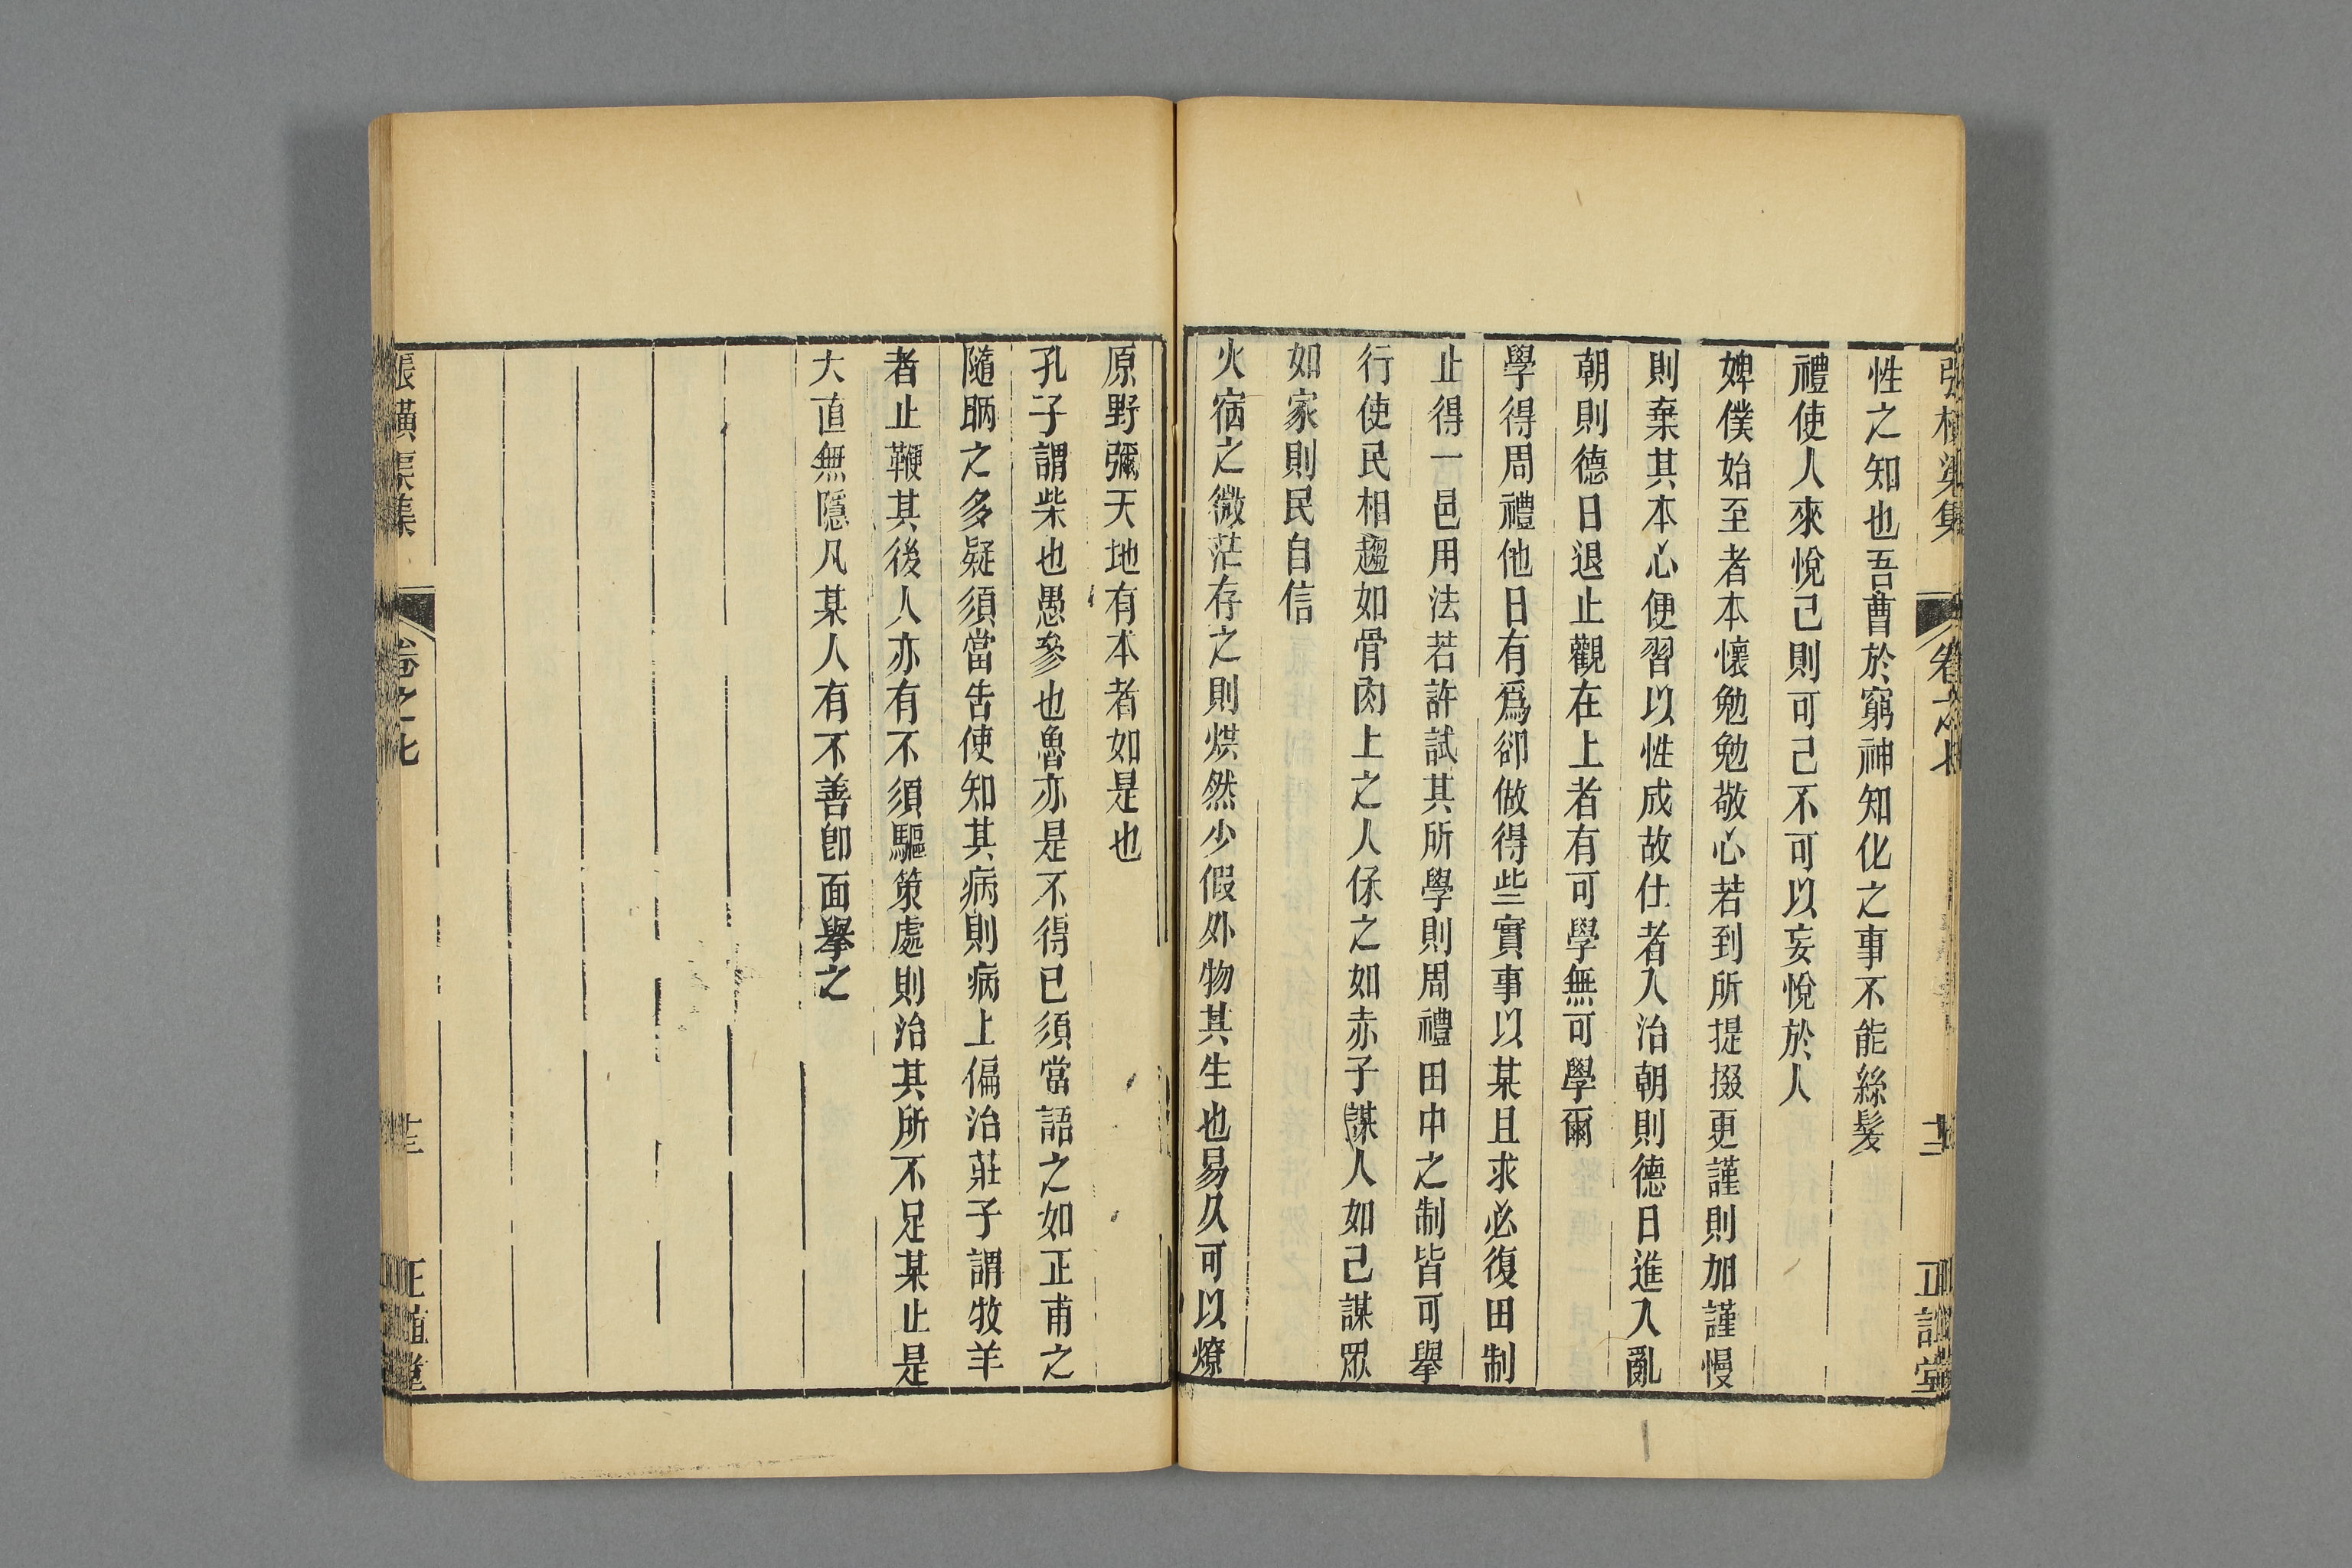 張橫渠集 卷之七 正誼堂
性之知也吾曹於窮神知化之事不能絲髮
禮使人來悅己則可己不可以妄悅於人
婢僕始至者本懷勉勉敬心若到所提掇更謹則加謹慢
則棄其本心便習以性成故仕者入治朝則德日進入亂
朝則德日退止觀在上者有可學無可學爾
學得周禮他日有爲卻做得些實事以某且求必復田制
止得一邑用法若許試其所學則周禮田中之制皆可舉
行使民相趨如骨肉上之人保之如赤子謀人如己謀眾
如家則民自信
火宿之微茫存之則烘然少假外物其生也易久可以燎
原野彌天地有本者如是也
孔子謂柴也愚參也魯亦是不得已須當語之如正甫之
隨昞之多疑須當告使知其病則病上偏治莊子謂牧羊
者止鞭其後人亦有不須驅策處則治其所不足某止是
大直無隱凡某人有不善卽面舉之
張橫渠集 卷之七 正誼堂